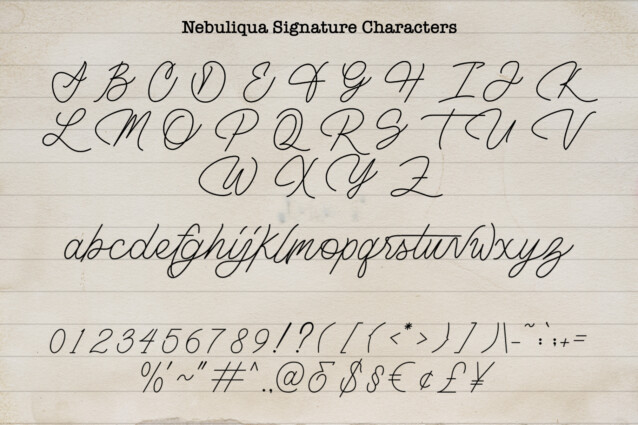 Nebuliqua Signature Characters
A B C D E F G H I J K
L M O P Q R S T U V
W X Y Z
abcdefghijklmopqrstuvwxyz
0123456789!?([{<*>}])|\-~`:;+=
%'~"#^.,@&$§€¢£¥